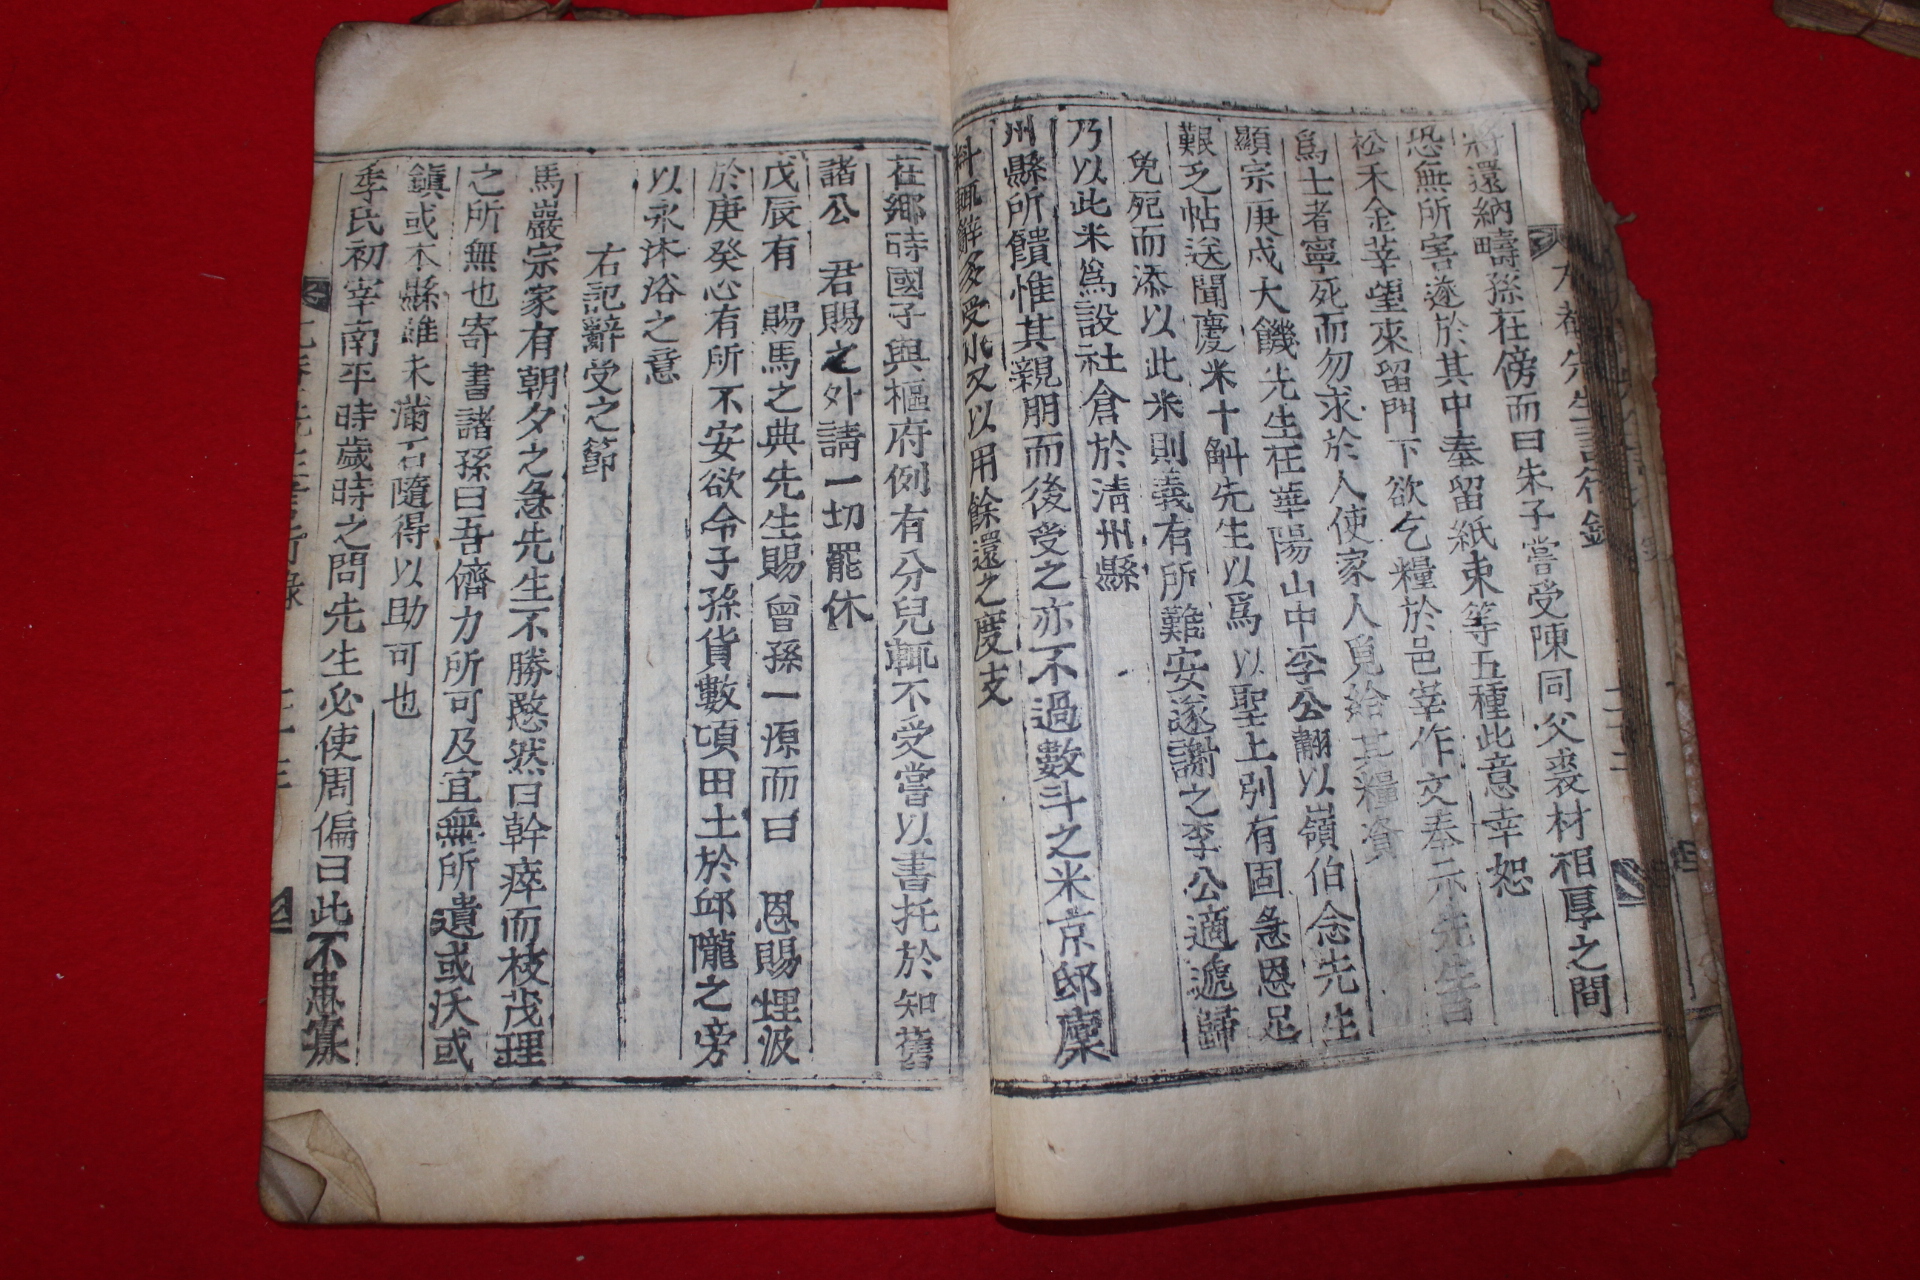 將還納疇孫在傍而曰朱子嘗受陳同父裘材相厚之間
恐無所害遂於其中奉留紙束等五種此意幸恕
松禾金莘望來留門下欲乞糧於邑宰作文奉示先生言
爲士者寧死而勿求於人使家人覓給其糧資
顯宗庚戌大饑先生在華陽山中李公翿以嶺伯念先生
艱乏帖送聞慶米十斛先生以爲以聖上別有固急恩足
免死而添以此米則義有所難安遂謝之李公適遞歸
乃以此米爲設社倉於淸州縣
州縣所饋惟其親朋而後受之亦不過數斗之米京邸廩
料輒辭多受小又以用餘還之度支
在鄕時國子與樞府例有分兒輒不受嘗以書托於知舊
諸公 君賜之外請一切罷休
戊辰有 賜馬之典先生賜曾孫一源而曰 恩賜埋汲
於庚癸心有所不安欲令子孫貨數頃田土於邱隴之旁
以永沐浴之意
右記辭受之節
馬巖宗家有朝夕之急先生不勝愍然曰幹瘁而枝茂理
之所無也寄書諸孫曰吾儕力所可及宜無所遺或沃或
鎭或本縣雖未滿石隨得以助可也
季氏初宰南平時歲時之問先生必使周徧曰此不患寡